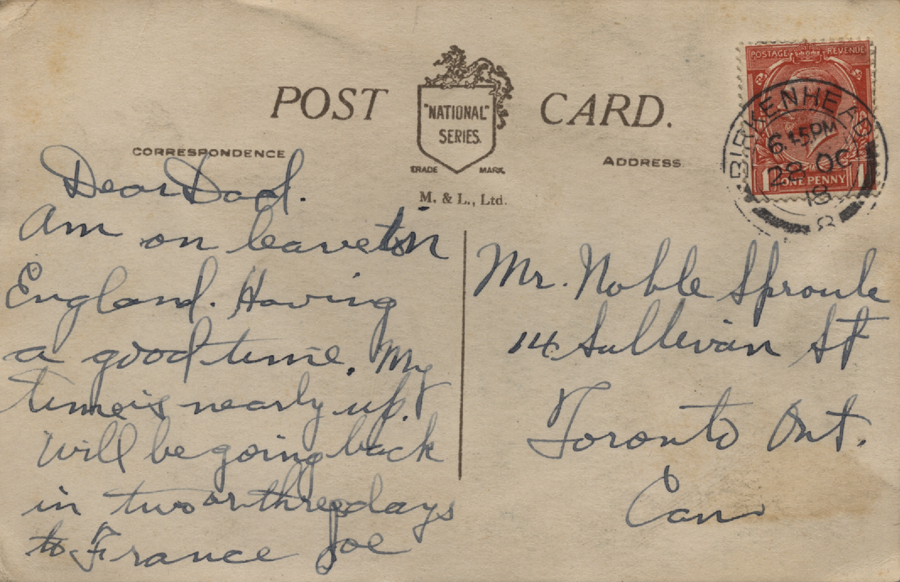 POST CARD.
"NATIONAL"
SERIES.
TRADE MARK.
M. & L., Ltd.
CORRESPONDENCE
ADDRESS
POSTAGE REVENUE
1 ONE PENNY 1
BIRKENHEAD
6.15PM
28 OC
18
8
Dear Dad.
Am on leave in
England. Having
a good time. My
time is nearly up.
Will be going back
in two or three days
to France Joe
Mr. Noble Sproule
14 Sullivan St
Toronto Ont.
Can